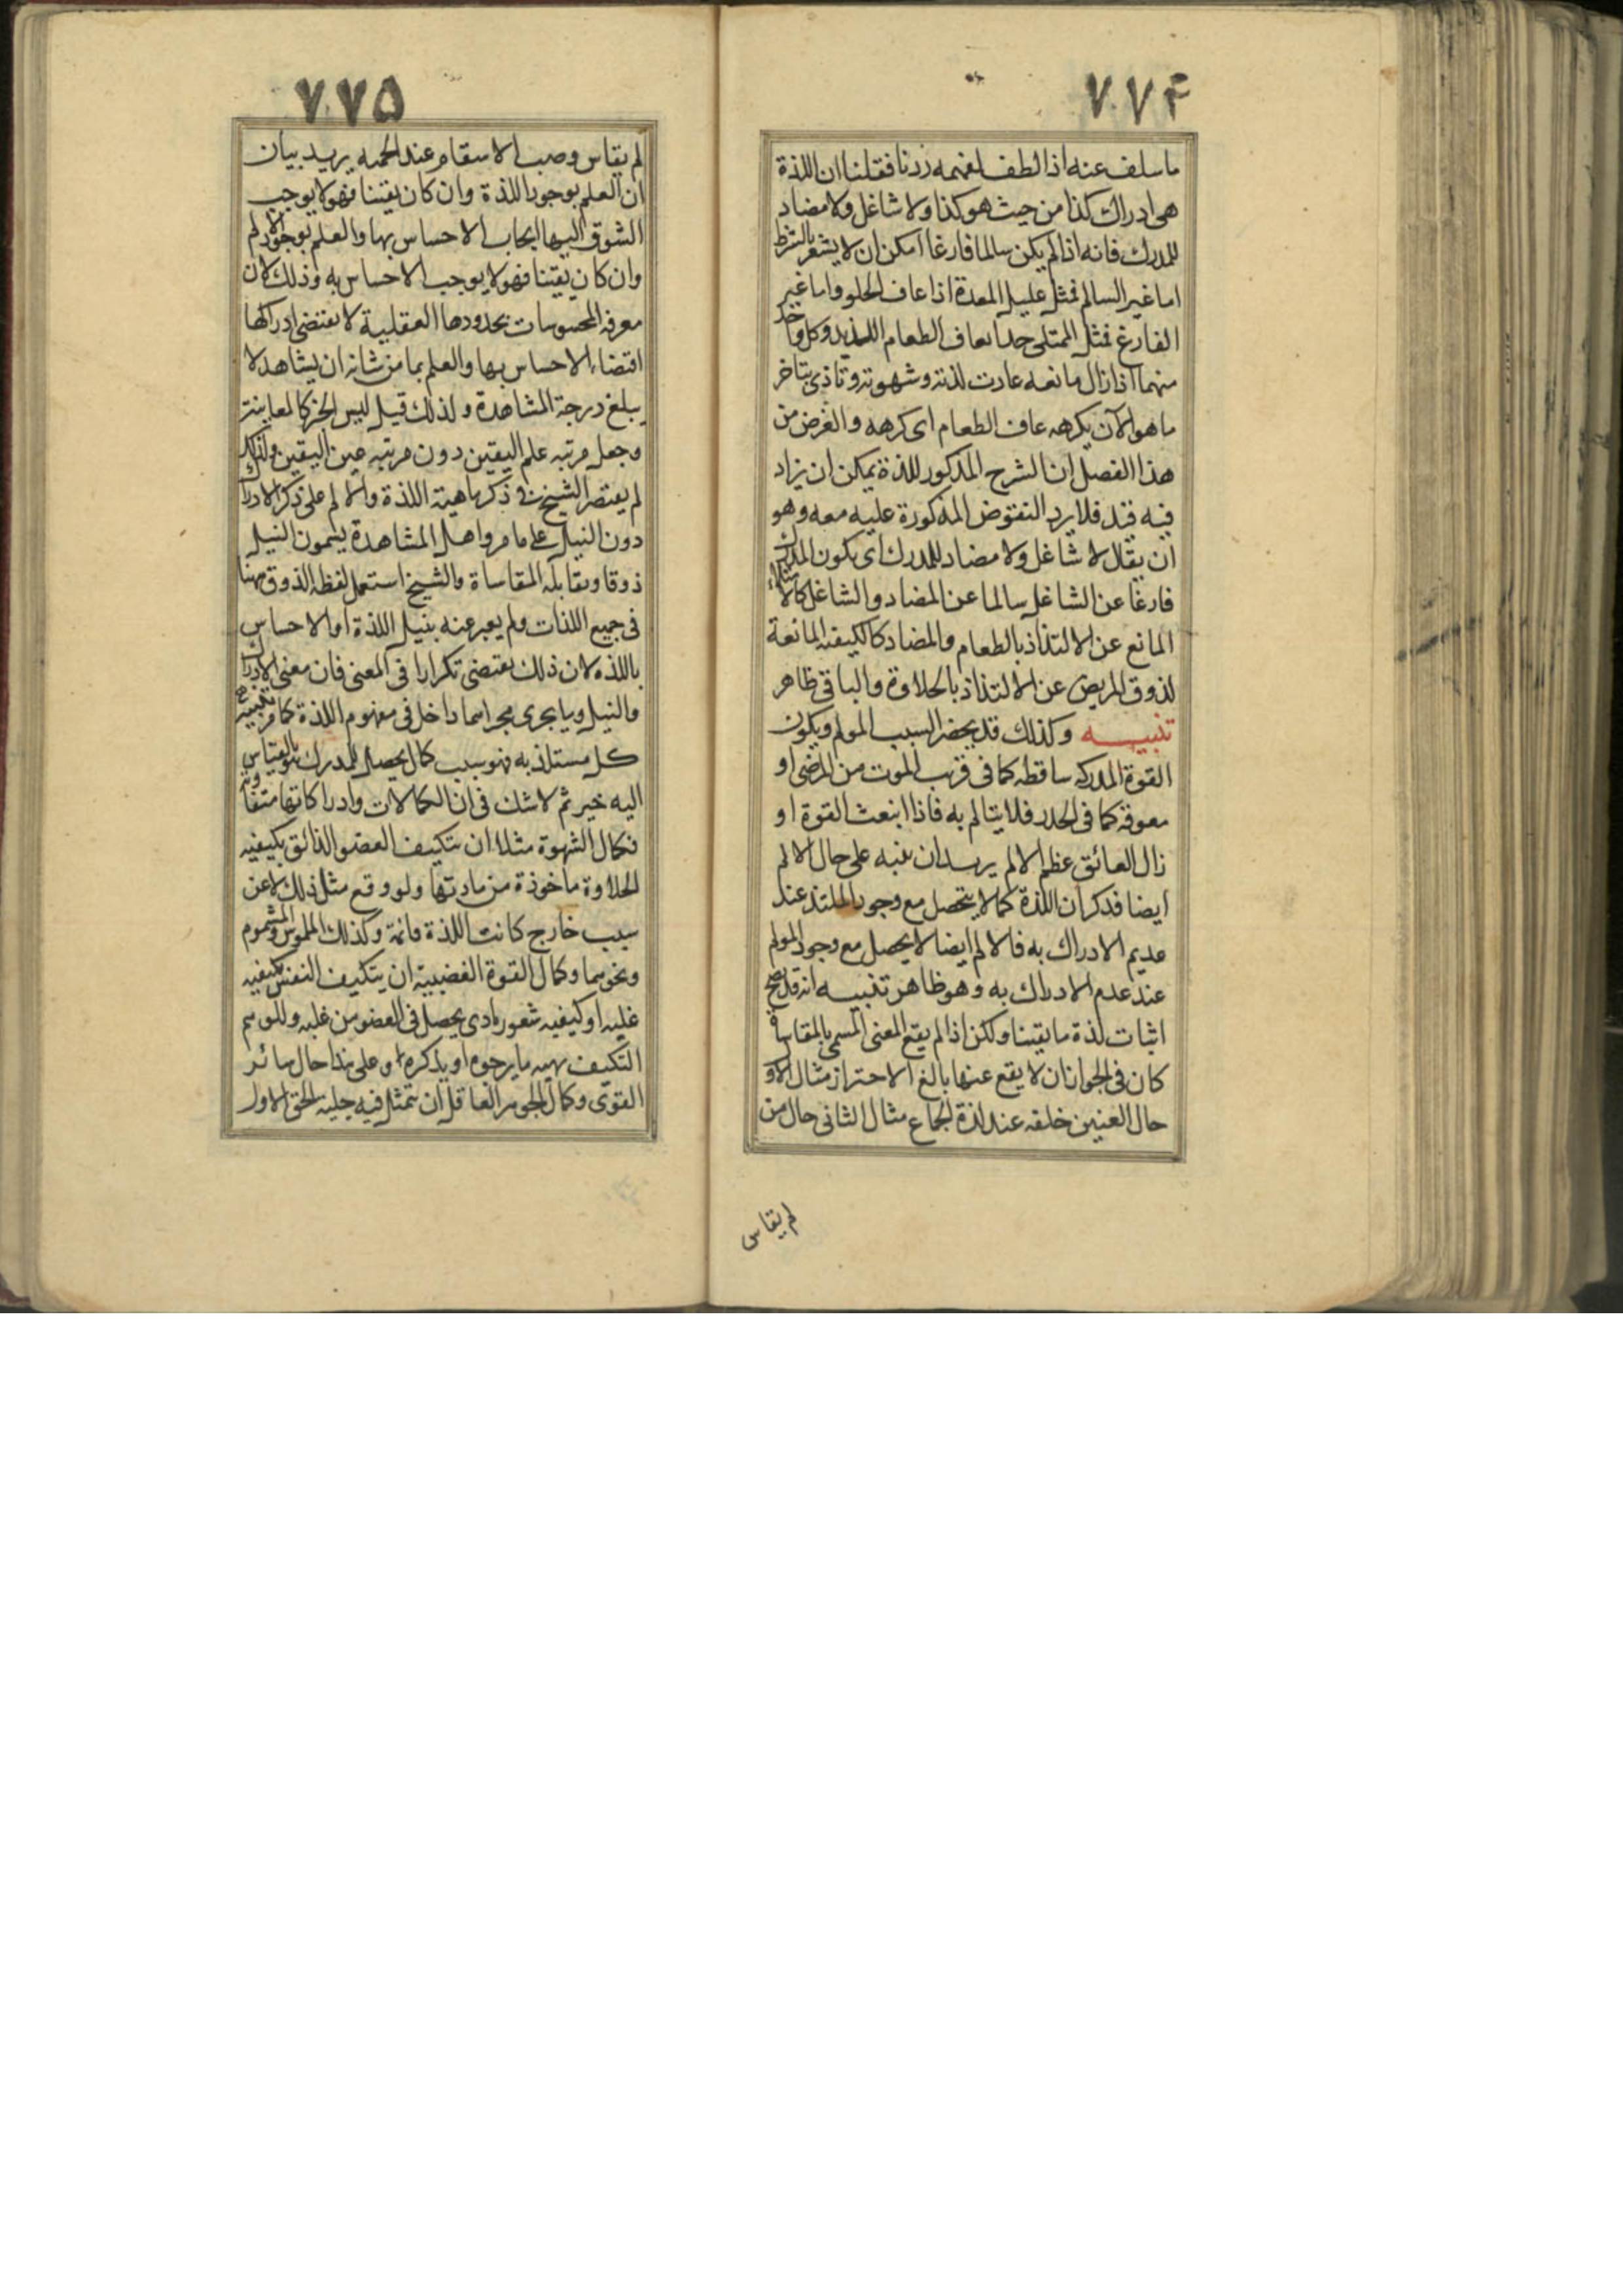 ٧٧۴
ما سلف عنه اذا لطف لفهمه زدنا فقلنا ان اللذة
هى ادراك كذا من حيث هو كذا ولا شاغل ولا مضاد
للمدرك فانه اذا لم يكن سالما فارغا امكن ان لا يشعر بالشرط
اما غير السالم فمثل عليل المعدة اذا عاف الحلو واما غير
الفارغ فمثل الممتلى جدا يعاف الطعام اللذيذ وكل واحد
منهما اذا زال مانعه عادت لذته وشهوته وتاذى بتاخر
ما هو الآن يكرهه عاف الطعام اى كرهه والغرض من
هذا الفصل ان الشرح المذكور للذة يمكن ان يزاد
فيه قيد فلا يرد النقوض المذكورة عليه معه وهو
ان يقال لا شاغل ولا مضاد للمدرك اى يكون المدرك
فارغا عن الشاغل سالما عن المضاد والشاغل كالامتلاء
المانع عن الالتذاذ بالطعام والمضاد كالكيفيه المانعة
لذوق المريض عن الالتذاذ بالحلاوة والباقى ظاهر
تنبيـــه وكذلك قد يحضر السبب المولم ويكون
القوة المدركه ساقطه كما فى قرب الموت من المرضى او
معوقه كما فى الخدر فلا يتالم به فاذا انبعث القوة او
زال العائق عظم الالم يريد ان ينبه على حال الالم
ايضا فذكر ان اللذة كما لا يتحصل مع وجود الملتذ عند
عديم الادراك به فالالم ايضا لا يحصل مع وجود المولم
عند عدم الادراك به وهو ظاهر تنبيـه انه قد يصح
اثبات لذة ما يقينا ولكن اذا لم يقع المعنى المسمى بالمقاساة
كان فى الجواز ان لا يقع عنها بالغ الاحتراز مثال الاول
حال العنين خلقه عند لذة الجماع مثال الثانى حال من
لم يقاس
٧٧۵
لم يقاس وصب الاسقام عند الحميه يريد بيان
ان العلم بوجود اللذة وان كان يقينا فهو لا يوجب
الشوق اليها ايجاب الاحساس بها والعلم بوجود الالم
وان كان يقينا فهو لا يوجب الاحساس به وذلك لان
معرفه المحسوسات بحدودها العقلية لا تقتضى ادراكها
اقتضاء الاحساس بها والعلم بما من شانه ان يشاهد لا
يبلغ درجة المشاهدة ولذلك قيل ليس الخبر كالمعاينة
وجعل مرتبه علم اليقين دون مرتبه عين اليقين ولذلك
لم يقتصر الشيخ فى ذكر ماهية اللذة والالم على ذكر الادراك
دون النيل على ما مر واهل المشاهدة يسمون النيل
ذوقا ويقابله المقاساة والشيخ استعمل لفظه الذوق ههنا
فى جميع اللذات ولم يعبر عنه بنيل اللذة او الاحساس
باللذه لان ذلك يقتضى تكرارا فى المعنى فان معنى الادراك
والنيل وما يجرى مجراهما داخل فى مفهوم اللذة كما مر تنبيه
كل مستلذ به فهو سبب كمال يحصل للمدرك هو بالقياس
اليه خير ثم لا شك فى ان الكمالات وادراكاتها متفاوته
فكمال الشهوة مثلا ان يتكيف العضو الذائق بكيفيه
الحلاوة ماخوذة من مادتها ولو وقع مثل ذلك لا عن
سبب خارج كانت اللذة قائمة وكذلك الملموس والمشموم
ونحوهما وكمال القوة الغضبية ان يتكيف النفس بكيفيه
غلبه او كيفيه شعور باذى يحصل فى المغضوب عليه وللوهم
التكيف بهيه ما يرجوه او يذكره وعلى هذا حال سائر
القوى وكمال الجوهر العاقل ان يتمثل فيه جليه الحق الاول